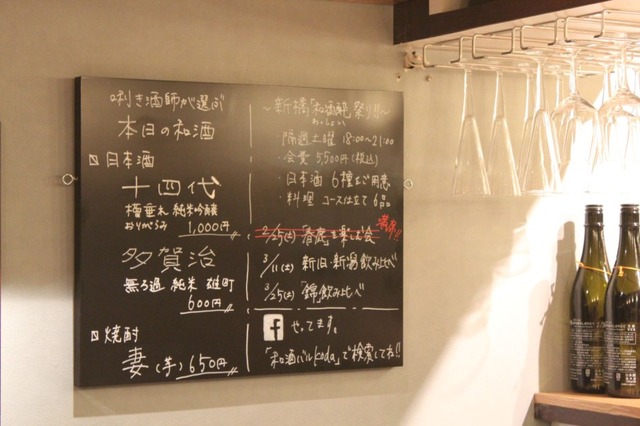 唎き酒師が選ぶ
本日の和酒
日本酒
十四代
槽垂れ 純米吟醸
おりがらみ 1,000円
多賀治
無ろ過 純米 雄町
600円
焼酎
妻(芋) 650円
～新橋「和酒酔祭り!!～
わっしょい
隔週土曜 18:00～21:00
・会費 5,500円(税込)
・日本酒 6種をご用意
・料理 コース仕立て 6品
満席!!
2/25(土) 「春鹿」を楽しむ会
3/11(土) 新旧・新潟飲み比べ
3/25(土) 「錦」飲み比べ
f やってます。
「和酒バルKoda」で検索してね!!